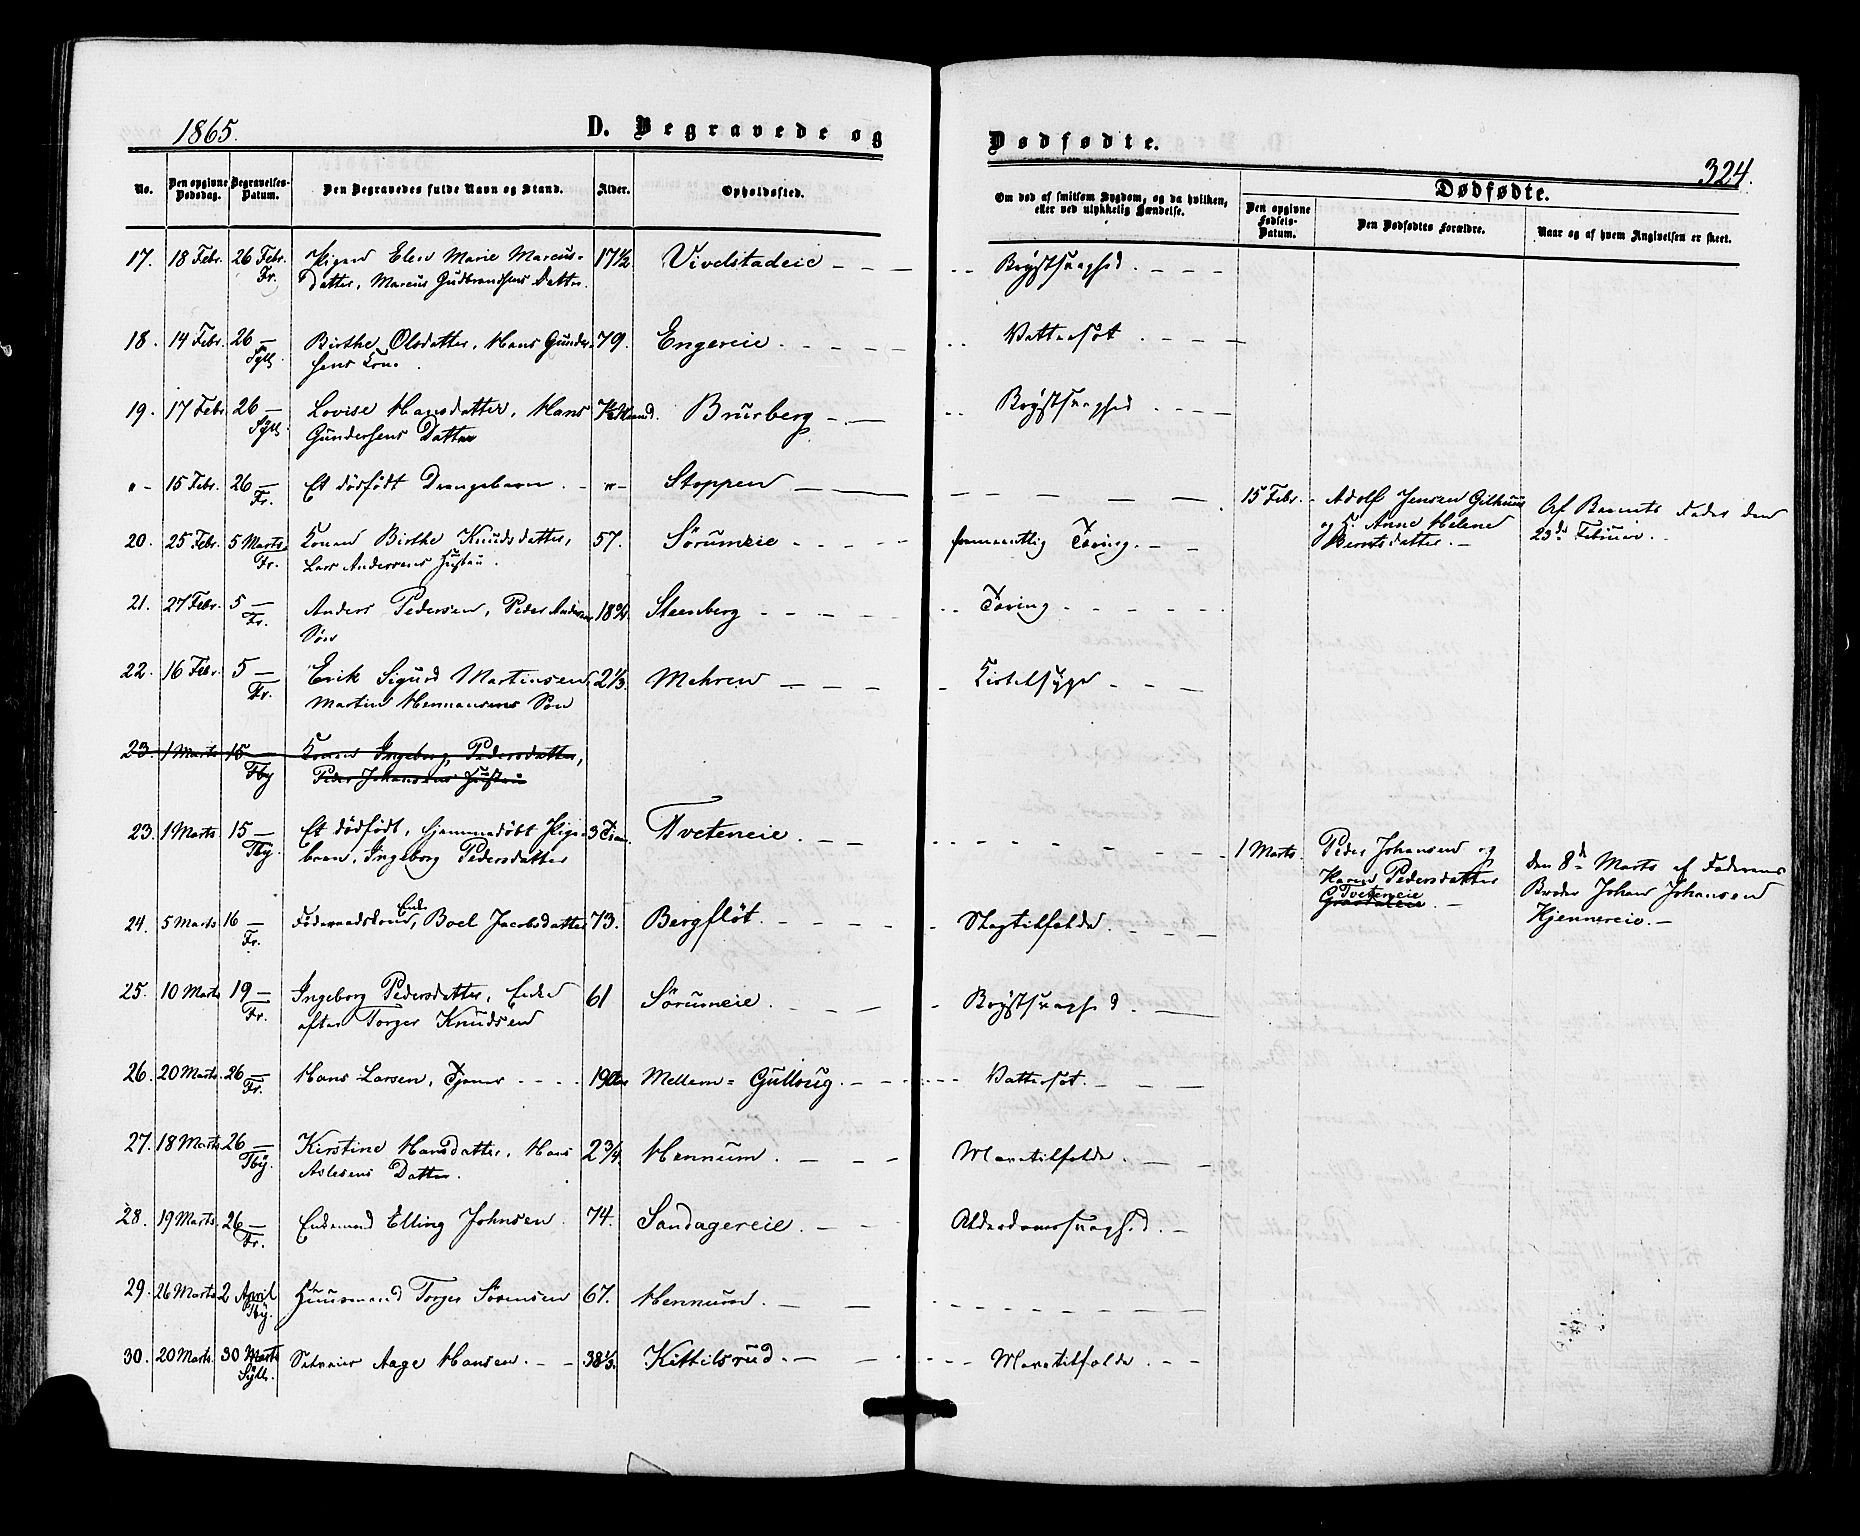 1865.
D. Begravede og
Dødfødte.
324.
No.
Den opgivne Dødsdag.
Begravelses-Datum.
Den Begravedes fulde Navn og Stand.
Alder.
Opholdssted.
Om død af smitsom Sygdom, og da hvilken, eller ved ulykkelig Hændelse.
Dødfødte.
Den opgivne Fødsels-Datum.
Den Dødfødtes Forældre.
Naar og af hvem Angivelsen er skeet.
17. 18 Febr. 26 Febr. Pigen Elen Marie Marcus- 17½ Vivelstadeie Brystsvaghed
Fr. Datter, Marcus Gudbrandsens Datter.
18. 14 Febr. 26 — Birthe Olsdatter, Hans Gunder- 79. Engereie Vattersot
Syll. sens Kone.
19. 17 Febr. 26 — Lovise Hansdatter, Hans Brurberg Brystsvaghed
Syll. Gundersens Datter
"- 15 Febr. 26 — Et dødfødt Drengebarn - "- Stoppen 15 Febr. Adolf Jensen Gilhuus Af Barnets Fader den
Fr. og K. Anne Helene 23de Februar.
Berntsdatter.
20. 25 Febr. 5 Marts Konen Birthe Knudsdatter, 57. Sörumeie formentlig Tæring
Fr. Lars Andersens Hustru.
21. 27 Febr. 5 — Anders Pedersen, Peder Anders 18¾ Steenberg Tæring
Fr. Søn
22. 16 Febr. 5 — Erik Sigurd Martinsen, 2⅓ Mehren Kirtelsyge
Fr. Martin Hermansens Søn
23. 1 Marts 15 — Konen Ingeborg Pedersdatter,
Tby Peder Johansens Hustru
23. 1 Marts. 15 — Et dødfødt, hjemmedøbt Pige- 3 Tim. Tveteneie 1 Marts. Peder Johansen og den 8de Marts af Faderens
Tby. barn, Ingeborg Pedersdatter Karen Pedersdatter Broder Johan Johansen
Tveteneie Hjennereie.
24. 5 Marts 16 — Føderaadskone, Enke Boel Jacobsdatter 73. Bergflöt Slagtilfælde
Fr.
25. 10 Marts 19 — Ingeborg Pedersdatter, Enke 61 Sörumeie Brystsvaghed
Fr. efter Torger Knudsen
26. 20 Marts. 26 — Hans Larsen, Tjener 19 Aar Mellem-Gullaug Vattersot
Fr.
27. 18 Marts 26 — Kirstine Hansdatter, Hans 2¾ Hennum Mavetilfælde
Tby. Aslesens Datter.
28. 19 Marts. 26 — Enkemand Elling Johnsen. 74. Sandagereie Alderdomssvaghed
Fr.
29. 26 Marts 2 April Huusmand Torger Sörensen 67. Hennum
Tby.
30. 20 Marts. 30 Marts Selveier Aage Hansen 38⅓ Kittilsrud Mavetilfælde
Syll.